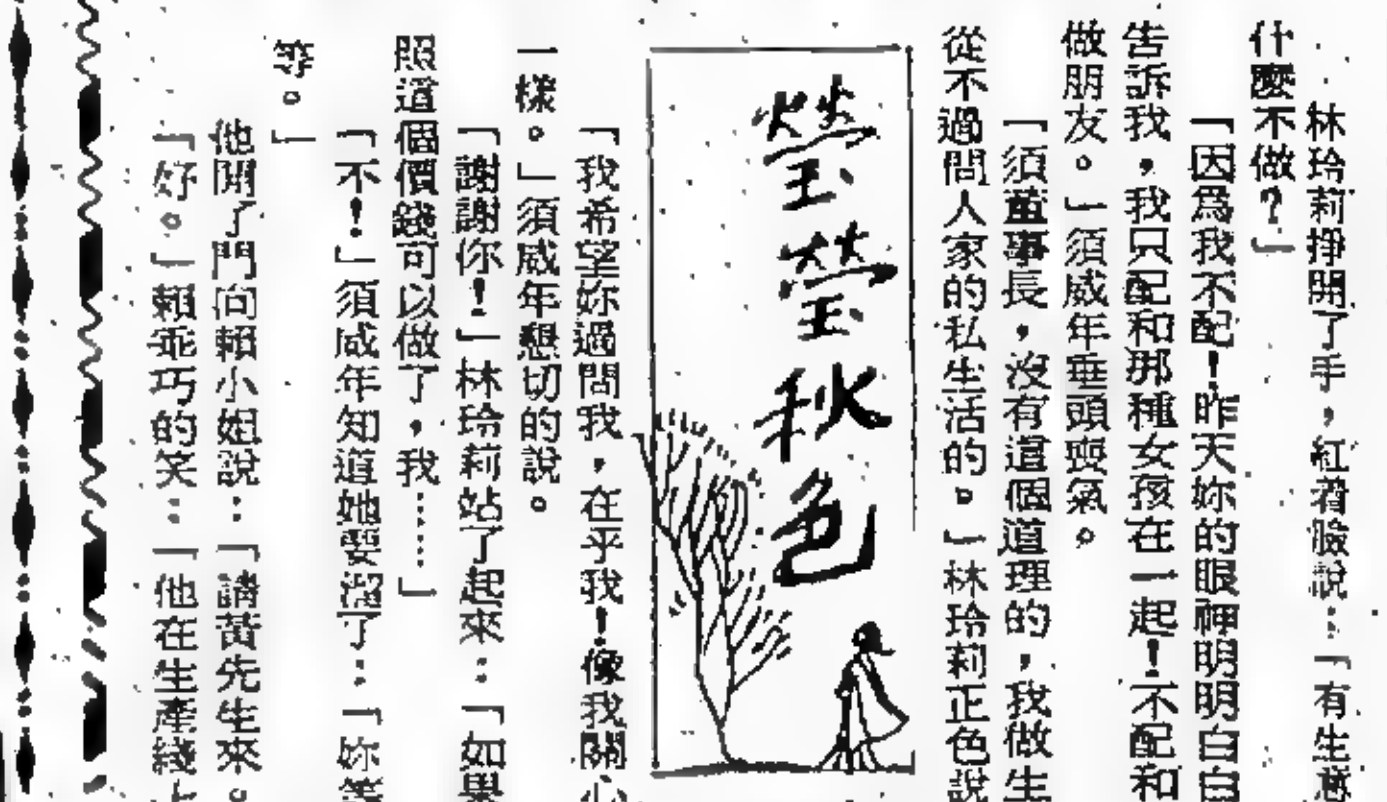 林玲莉掙開了手，紅着臉說：「有生意
什麼不做？」
「因爲我不配！昨天妳的眼神明明白白
告訴我，我只配和那種女孩在一起！不配和
做朋友。」須威年垂頭喪氣。
「須董事長，沒有這個道理的，我做生
從不過問人家的私生活的。」林玲莉正色說
瑩瑩秋色
「我希望妳過問我，在乎我！像我關心
一樣。」須威年懇切的說。
「謝謝你！」林玲莉站了起來：「如果
照這個價錢可以做了，我……」
「不！」須威年知道她要溜了：「妳等
等。」
他開了門向賴小姐說：「請黃先生來。
「好。」賴乖巧的笑：「他在生產綫上